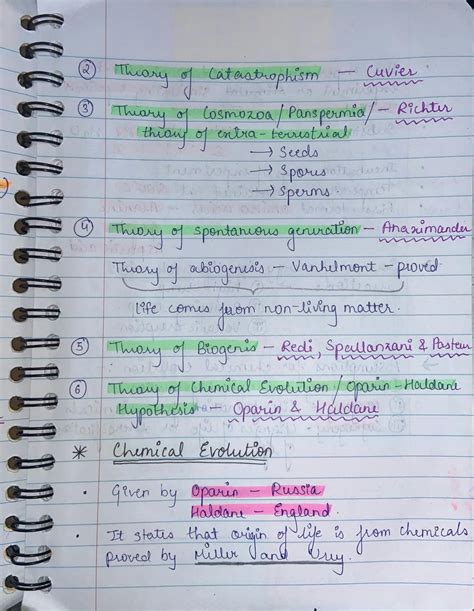 ② Theory of Catastrophism — Cuvier
③ Theory of Cosmozoa/Panspermia/ — Richter
theory of extra-terrestrial
→ Seeds
→ Spores
→ Sperms
④ Theory of Spontaneous generation — Anaximander
Theory of abiogenesis — Vanhelmont — proved
life comes from non-living matter.
⑤ Theory of Biogenis — Redi, Spallanzani & Pasteur
⑥ Theory of Chemical Evolution / Oparin-Haldane
Hypothesis — Oparin & Haldane
* Chemical Evolution
• Given by Oparin — Russia
Haldane — England.
• It states that origin of life is from chemicals
proved by Miller and Urey.